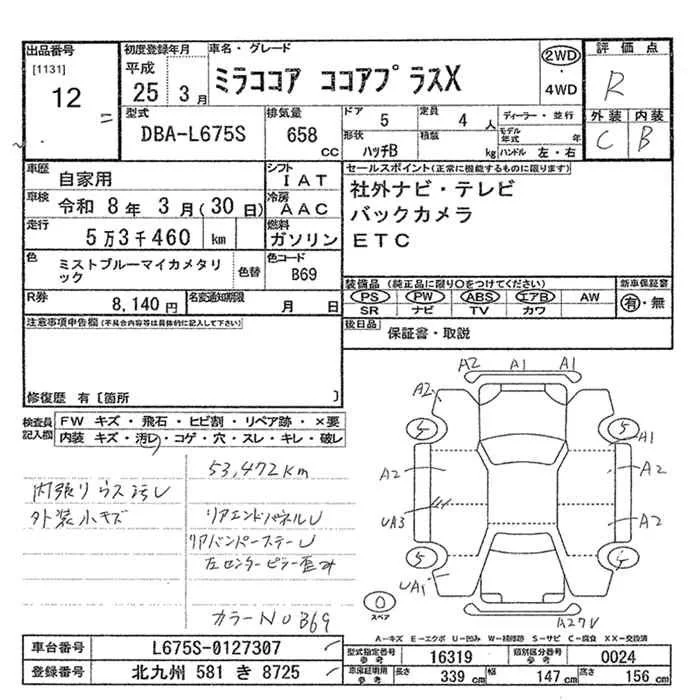 出品番号
[1131]
12
初度登録年月
平成
25 3月
車名・グレード
ミラココア ココアプラスX
2WD
・
4WD
評価点
R
外装 内装
C B
型式
DBA-L675S
排気量
658 cc
ドア 5
定員 4人
形状 ハッチB
積載 kg
ディーラー・並行
モデル年式 年
ハンドル 左・右
車歴
自家用
シフト
IAT
車検
令和 8年 3月(30日)
冷房
AAC
走行
5万3千460 km
燃料
ガソリン
色
ミストブルーマイカメタリック
色替
色コード
B69
R券
8,140円
名変通知期限
月 日
セールスポイント(正常に機能するものに限ります)
社外ナビ・テレビ
バックカメラ
ETC
装備品(純正品に限り○をつけてください)
PS PW ABS エアB AW
SR ナビ TV カワ
新車保証書
有・無
後日品
保証書・取説
注意事項申告欄(不具合内容等は具体的に記入して下さい)
修復歴 有〔箇所 〕
検査員記入欄
FW キズ・飛石・ヒビ割・リペア跡・×要
内装 キズ・汚レ・コゲ・穴・スレ・キレ・破レ
53,472km
内張りウス汚レ
外装小キズ
リアエンドパネルU
リアバンパーステーU
左センターピラー歪み
カラーNO B69
A2 A1 A1
A2
5 5
A1
A2 A2
UA3
A2
5 5
UA1
0
スペア
A27V
A-キズ E-エクボ U-凹み W-補修跡 S-サビ C-腐食 XX-交換済
車台番号
L675S-0127307
登録番号
北九州 581 き 8725
型式指定番号
参考
16319
類別区分番号
参考
0024
車庫証明用
参考
長さ 339 cm
幅 147 cm
高さ 156 cm